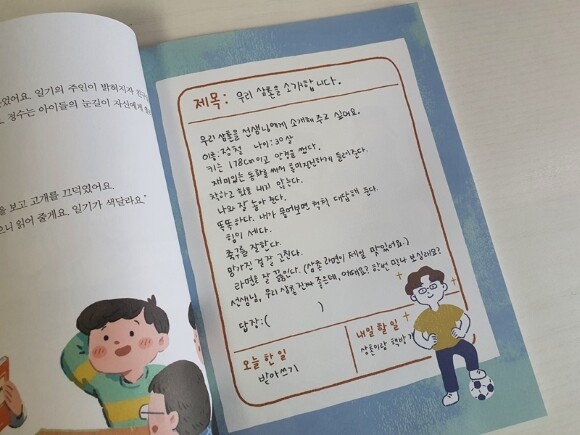 았어요. 일기의 주인이 밝혀지자 친구
정수는 아이들의 눈길이 자신에게
을 보고 고개를 끄덕였어요.
으니 읽어 줄게요. 일기가 색달라요."
제목: 우리 삼촌을 소개합니다.
우리 삼촌을 선생님에게 소개해 주고 싶어요.
이름: 정철 나이: 30살
키는 178cm이고 안경을 썼다.
재미있는 동화를 써서 흥미진진하게 들려준다.
착하고 화를 내지 않는다.
나와 잘 놀아 준다.
똑똑하다. 내가 물어보면 척척 대답해 준다.
힘이 세다.
축구를 잘한다.
망가진 걸 잘 고친다.
라면을 잘 끓인다. (삼촌 라면이 제일 맛있어요.)
선생님, 우리 삼촌 진짜 좋은데, 어때요? 한번 만나 보실래요?
답장:( )
오늘 한 일
받아쓰기
내일 할 일
삼촌이랑 책방